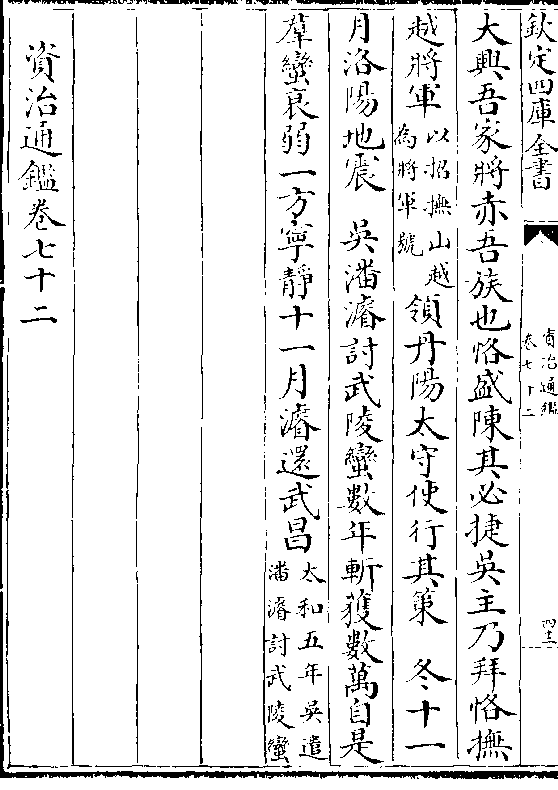 欽定四庫全書
資治通鑑
卷七十二
大興吾家將赤吾族也恪盛陳其必捷吳主乃拜恪撫
越將軍以招撫山越
為將軍號領丹陽太守使行其策　冬十一
月洛陽地震　吳潘濬討武陵蠻數年斬獲數萬自是
羣蠻衰弱一方寧靜十一月濬還武昌太和五年吳遣
潘濬討武陵蠻
資治通鑑卷七十二